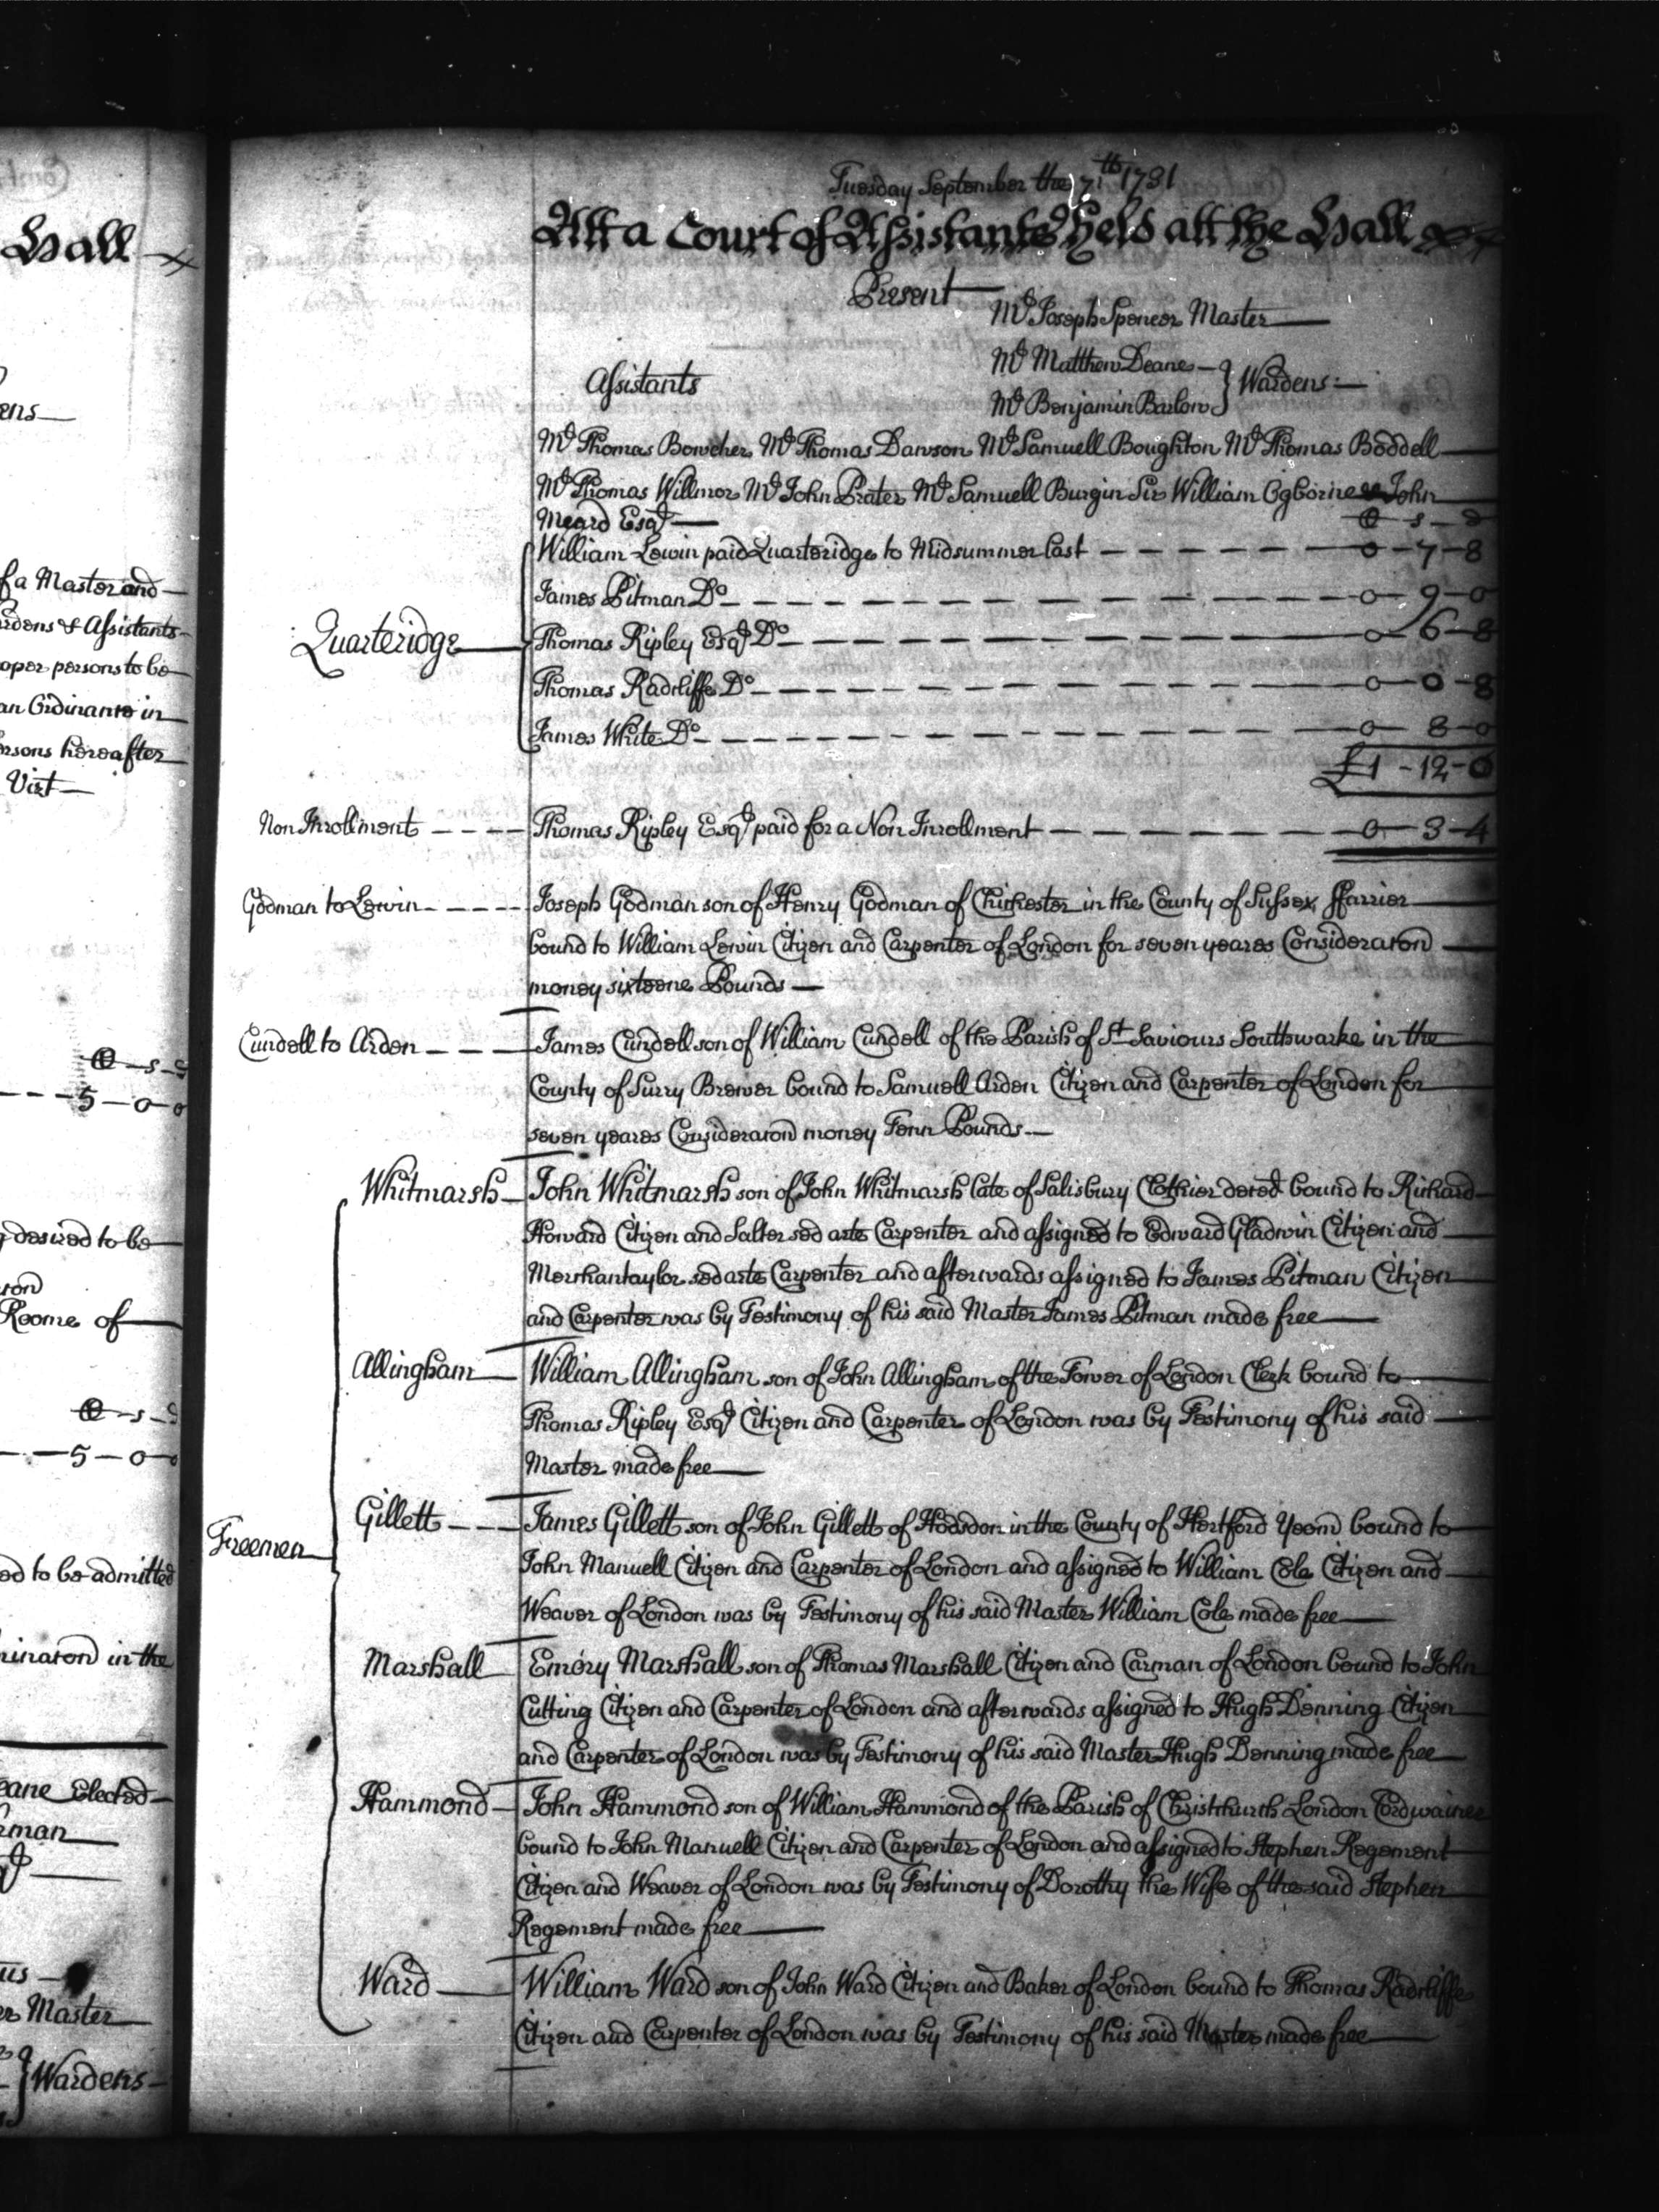 Hall
ens
f a Master and
rdens & Assistants
oper persons to be
an Ordinance in
rsons hereafter
Vizt
£ s d
5 - 0 - 0
desired to be
Roome of
£ s d
5 - 0
ed to be admitted
in the
eane Elected
us
er Master
Wardens
Tuesday September the 7th 1731
Att a Court of Assistants held att the Hall
Present
Mr Joseph Spencer Master
Mr Matthew Deane
Assistants
Wardens
Mr Benjamin Barlow
Mr Thomas Bowcher Mr Thomas Dawson Mr Samuell Boughton Mr Thomas Boddell
Mr Thomas Willmer Mr John Prater Mr Samuell Burgin Sir William Ogborne & John
Meard Esqr
£ s d
William Lewin paid Quarteridge to Midsummer last 0 - 7 - 8
James Pitman Do 0 - 9 - 0
Quarteridge
Thomas Ripley Esqr Do 0 - 6 - 8
Thomas Radcliffe Do 0 - 0 - 8
James White Do 0 - 8 - 0
£1 - 12 - 0
Non Inrollment Thomas Ripley Esqr paid for a Non Inrollment 0 - 3 - 4
Godman to Lewin Joseph Godman son of Henry Godman of Chichester in the County of Sussex ffarrier
bound to William Lewin Citizen and Carpenter of London for seven yeares Consideracon
money sixteene Pounds
Cundell to Arden James Cundell son of William Cundell of the Parish of St Saviours Southwarke in the
County of Surry Brewer bound to Samuell Arden Citizen and Carpenter of London for
seven yeares Consideracon money Tenn Pounds
Whitmarsh John Whitmarsh son of John Whitmarsh late of Salisbury Clothier deced bound to Richard
Howard Citizen and Salter sed arte Carpenter and assigned to Edward Gladwin Citizen and
Merchantaylor sed arte Carpenter and afterwards assigned to James Pitman Citizen
and Carpenter was by Testimony of his said Master James Pitman made free
Allingham William Allingham son of John Allingham of the Tower of London Clerk bound to
Thomas Ripley Esqr Citizen and Carpenter of London was by Testimony of his said
Master made free
Gillett James Gillett son of John Gillett of Hodsdon in the County of Hertford Yeom bound to
Freemen
John Manuell Citizen and Carpenter of London and assigned to William Cole Citizen and
Weaver of London was by Testimony of his said Master William Cole made free
Marshall Emery Marshall son of Thomas Marshall Citizen and Carman of London bound to John
Cutting Citizen and Carpenter of London and afterwards assigned to Hugh Denning Citizen
and Carpenter of London was by Testimony of his said Master Hugh Denning made free
Hammond John Hammond son of William Hammond of the Parish of Christchurch London Cordwainer
bound to John Manuell Citizen and Carpenter of London and assigned to Stephen Regement
Citizen and Weaver of London was by Testimony of Dorothy the Wife of the said Stephen
Regement made free
Ward William Ward son of John Ward Citizen and Baker of London bound to Thomas Radcliffe
Citizen and Carpenter of London was by Testimony of his said Master made free